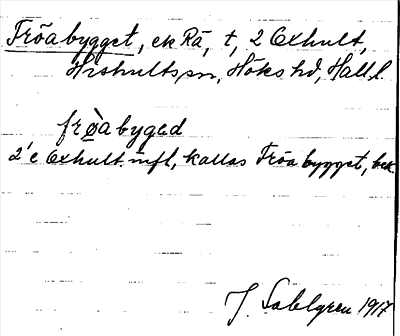 Fröabygget, ek Rä, t, 2 Oxhult,
Hishults sn, Höks hd, Hall. l.
frø̀abyged
2'e Oxhult mfl, kallas Fröabygget, bek
J. Sahlgren 1917